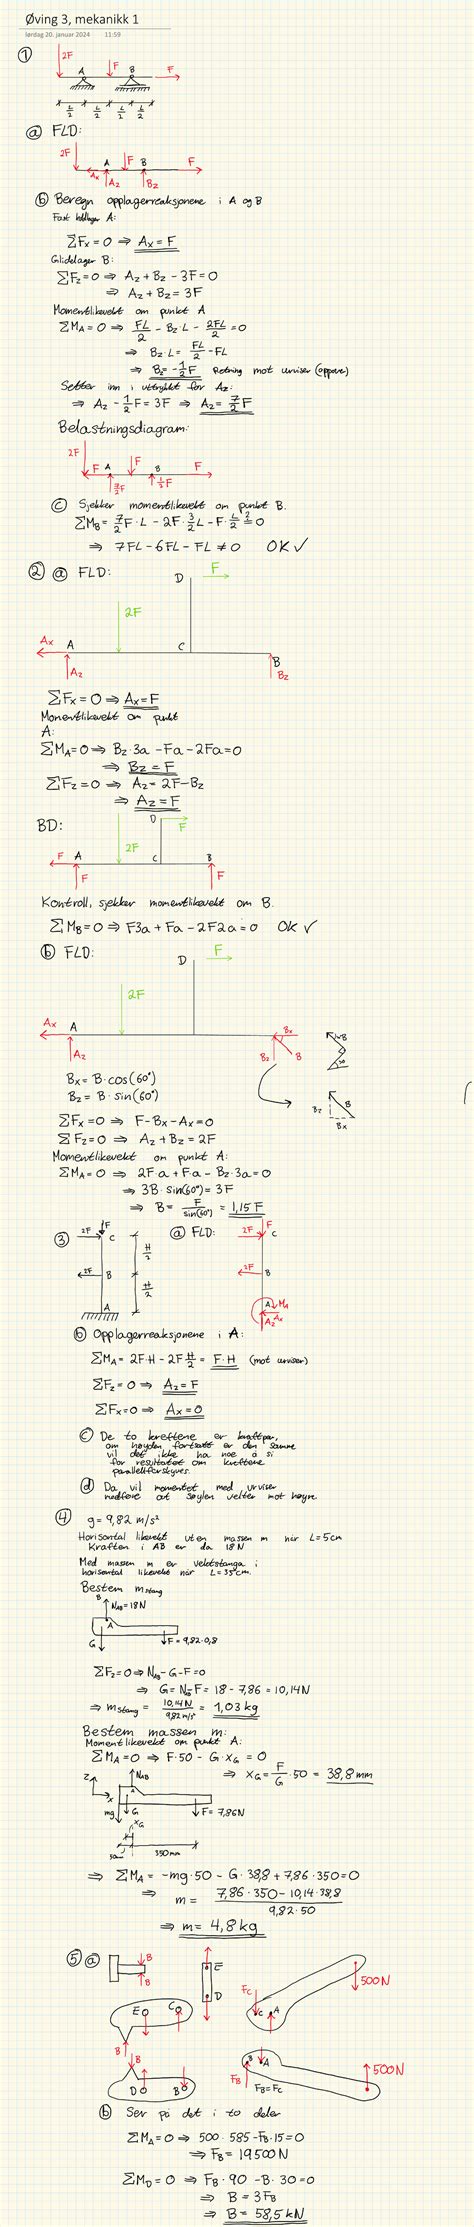 Øving 3, mekanikk 1
lørdag 20. januar 2024 11:59
①
2F A F B F
L/2 L/2 L/2 L/2
ⓐ FLD:
2F A F B F
Ax Az Bz
ⓑ Beregn opplagerreaksjonene i A og B
Fast boltlager A:
ΣFx = 0 ⇒ Ax = F
Glidelager B:
ΣFz = 0 ⇒ Az + Bz - 3F = 0
⇒ Az + Bz = 3F
Momentlikevekt om punkt A
ΣMA = 0 ⇒ FL/2 - Bz·L - 2FL/2 = 0
⇒ Bz·L = FL/2 - FL
⇒ Bz = -1/2 F Retning mot urviser (oppover)
Setter inn i uttrykket for Az:
⇒ Az - 1/2 F = 3F ⇒ Az = 7/2 F
Belastningsdiagram:
2F F A F B F
7/2 F 1/2 F
ⓒ Sjekker momentlikevekt om punkt B.
ΣMB = 7/2 F·L - 2F·3/2 L - F·L/2 ≟ 0
⇒ 7FL - 6FL - FL ≠ 0 OK ✓
② ⓐ FLD:
D F
2F
Ax A C B
Az Bz
ΣFx = 0 ⇒ Ax = F
Momentlikevekt om punkt
A:
ΣMA = 0 ⇒ Bz·3a - Fa - 2Fa = 0
⇒ Bz = F
ΣFz = 0 ⇒ Az = 2F - Bz
⇒ Az = F
BD:
D F
2F
F A C B
F F
Kontroll, sjekker momentlikevekt om B.
ΣMB = 0 ⇒ F3a + Fa - 2F2a = 0 OK ✓
ⓑ FLD:
D F
2F
Ax A Bx
Az Bz B
B
30
Bz B
Bx
Bx = B·cos(60°)
Bz = B·sin(60°)
ΣFx = 0 ⇒ F - Bx - Ax = 0
ΣFz = 0 ⇒ Az + Bz = 2F
Momentlikevekt om punkt A:
ΣMA = 0 ⇒ 2F·a + F·a - Bz·3a = 0
⇒ 3B·sin(60°) = 3F
⇒ B = F/sin(60°) = 1,15 F
③
F
2F C
H/2
2F B
H/2
A
ⓐ FLD:
F
2F C
2F B
A MA
Az Ax
ⓑ Opplagerreaksjonene i A:
ΣMA = 2F·H - 2F H/2 = F·H (mot urviser)
ΣFz = 0 ⇒ Az = F
ΣFx = 0 ⇒ Ax = 0
ⓒ De to kreftene er kraftpar,
om høyden fortsatt er den samme
vil det ikke ha noe å si
for resultatet om kreftene
parallellforskyves.
ⓓ Da vil momentet med urviser
medføre at søylen velter mot høyre.
④ g = 9,82 m/s²
Horisontal likevekt uten massen m når L = 5cm
Kraften i AB er da 18N
Med massen m er vektstanga i
horisontal likevekt når L = 35cm.
Bestem mstang
B NAB = 18N
A
G F = 9,82·0,8
ΣFz = 0 ⇒ NAB - G - F = 0
⇒ G = NAB - F = 18 - 7,86 = 10,14N
⇒ mstang = 10,14N / 9,82 m/s² = 1,03 kg
Bestem massen m:
Momentlikevekt om punkt A:
ΣMA = 0 ⇒ F·50 - G·xG = 0
⇒ xG = F/G · 50 = 38,8 mm
z x NAB A
mg G F = 7,86N
xG
50mm 350mm
⇒ ΣMA = -mg·50 - G·38,8 + 7,86·350 = 0
⇒ m = 7,86·350 - 10,14·38,8 / 9,82·50
⇒ m = 4,8 kg
⑤ ⓐ
B
B
E
D
500N
Fc C A
E C
B
B
D B
B A
FB FB = FC
500N
ⓑ Ser på det i to deler
ΣMA = 0 ⇒ 500·585 - FB·15 = 0
⇒ FB = 19500N
ΣMD = 0 ⇒ FB·90 - B·30 = 0
⇒ B = 3FB
⇒ B = 58,5 kN